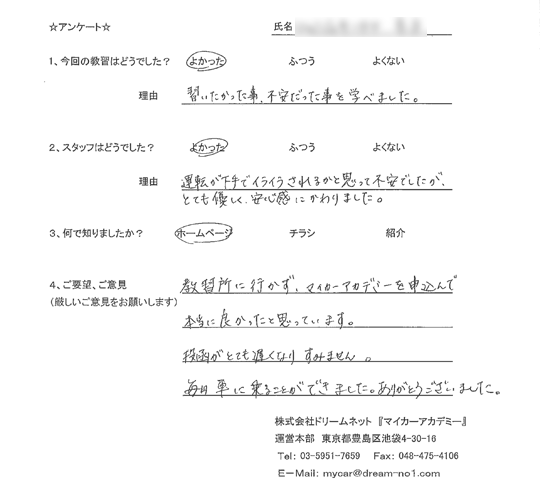 ☆アンケート☆ 氏名
1、今回の教習はどうでした? よかった ふつう よくない
理由 習いたかった事、不安だった事を学べました。
2、スタッフはどうでした? よかった ふつう よくない
理由 運転が下手でイライラされるかと思って不安でしたが、
とても優しく、安心感にかわりました。
3、何で知りましたか? ホームページ チラシ 紹介
4、ご要望、ご意見
(厳しいご意見をお願いします)
教習所に行かず、マイカーアカデミーを申込んで
本当に良かったと思っています。
投函がとても遅くなりすみません。
毎日車に乗ることができました。ありがとうございました。
株式会社ドリームネット 『マイカーアカデミー』
運営本部 東京都豊島区池袋4-30-16
Tel: 03-5951-7659 Fax: 048-475-4106
E-Mail: mycar@dream-no1.com